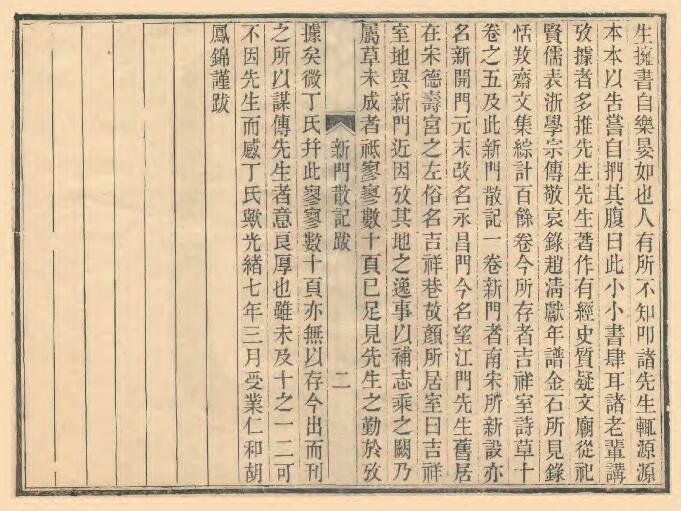 生擁書自樂晏如也人有所不知叩諸先生輒源源
本本以告嘗自捫其腹曰此小小書肆耳諸老輩講
攷據者多推先生先生著作有經史質疑文廟從祀
賢儒表浙學宗傳敬哀錄趙清獻年譜金石所見錄
恬敉齋文集綜計百餘卷今所存者吉祥室詩草十
卷之五及此新門散記一卷新門者南宋所新設亦
名新開門元末改名永昌門今名望江門先生舊居
在宋德壽宮之左俗名吉祥巷故顏所居室曰吉祥
室地與新門近因攷其地之逸事以補志乘之闕乃
屬草未成者祗寥寥數十頁已足見先生之勤於攷
新門散記跋 二
據矣微丁氏幷此寥寥數十頁亦無以存今出而刊
之所以謀傳先生者意良厚也雖未及十之一二可
不因先生而感丁氏歟光緒七年三月受業仁和胡
鳳錦謹跋